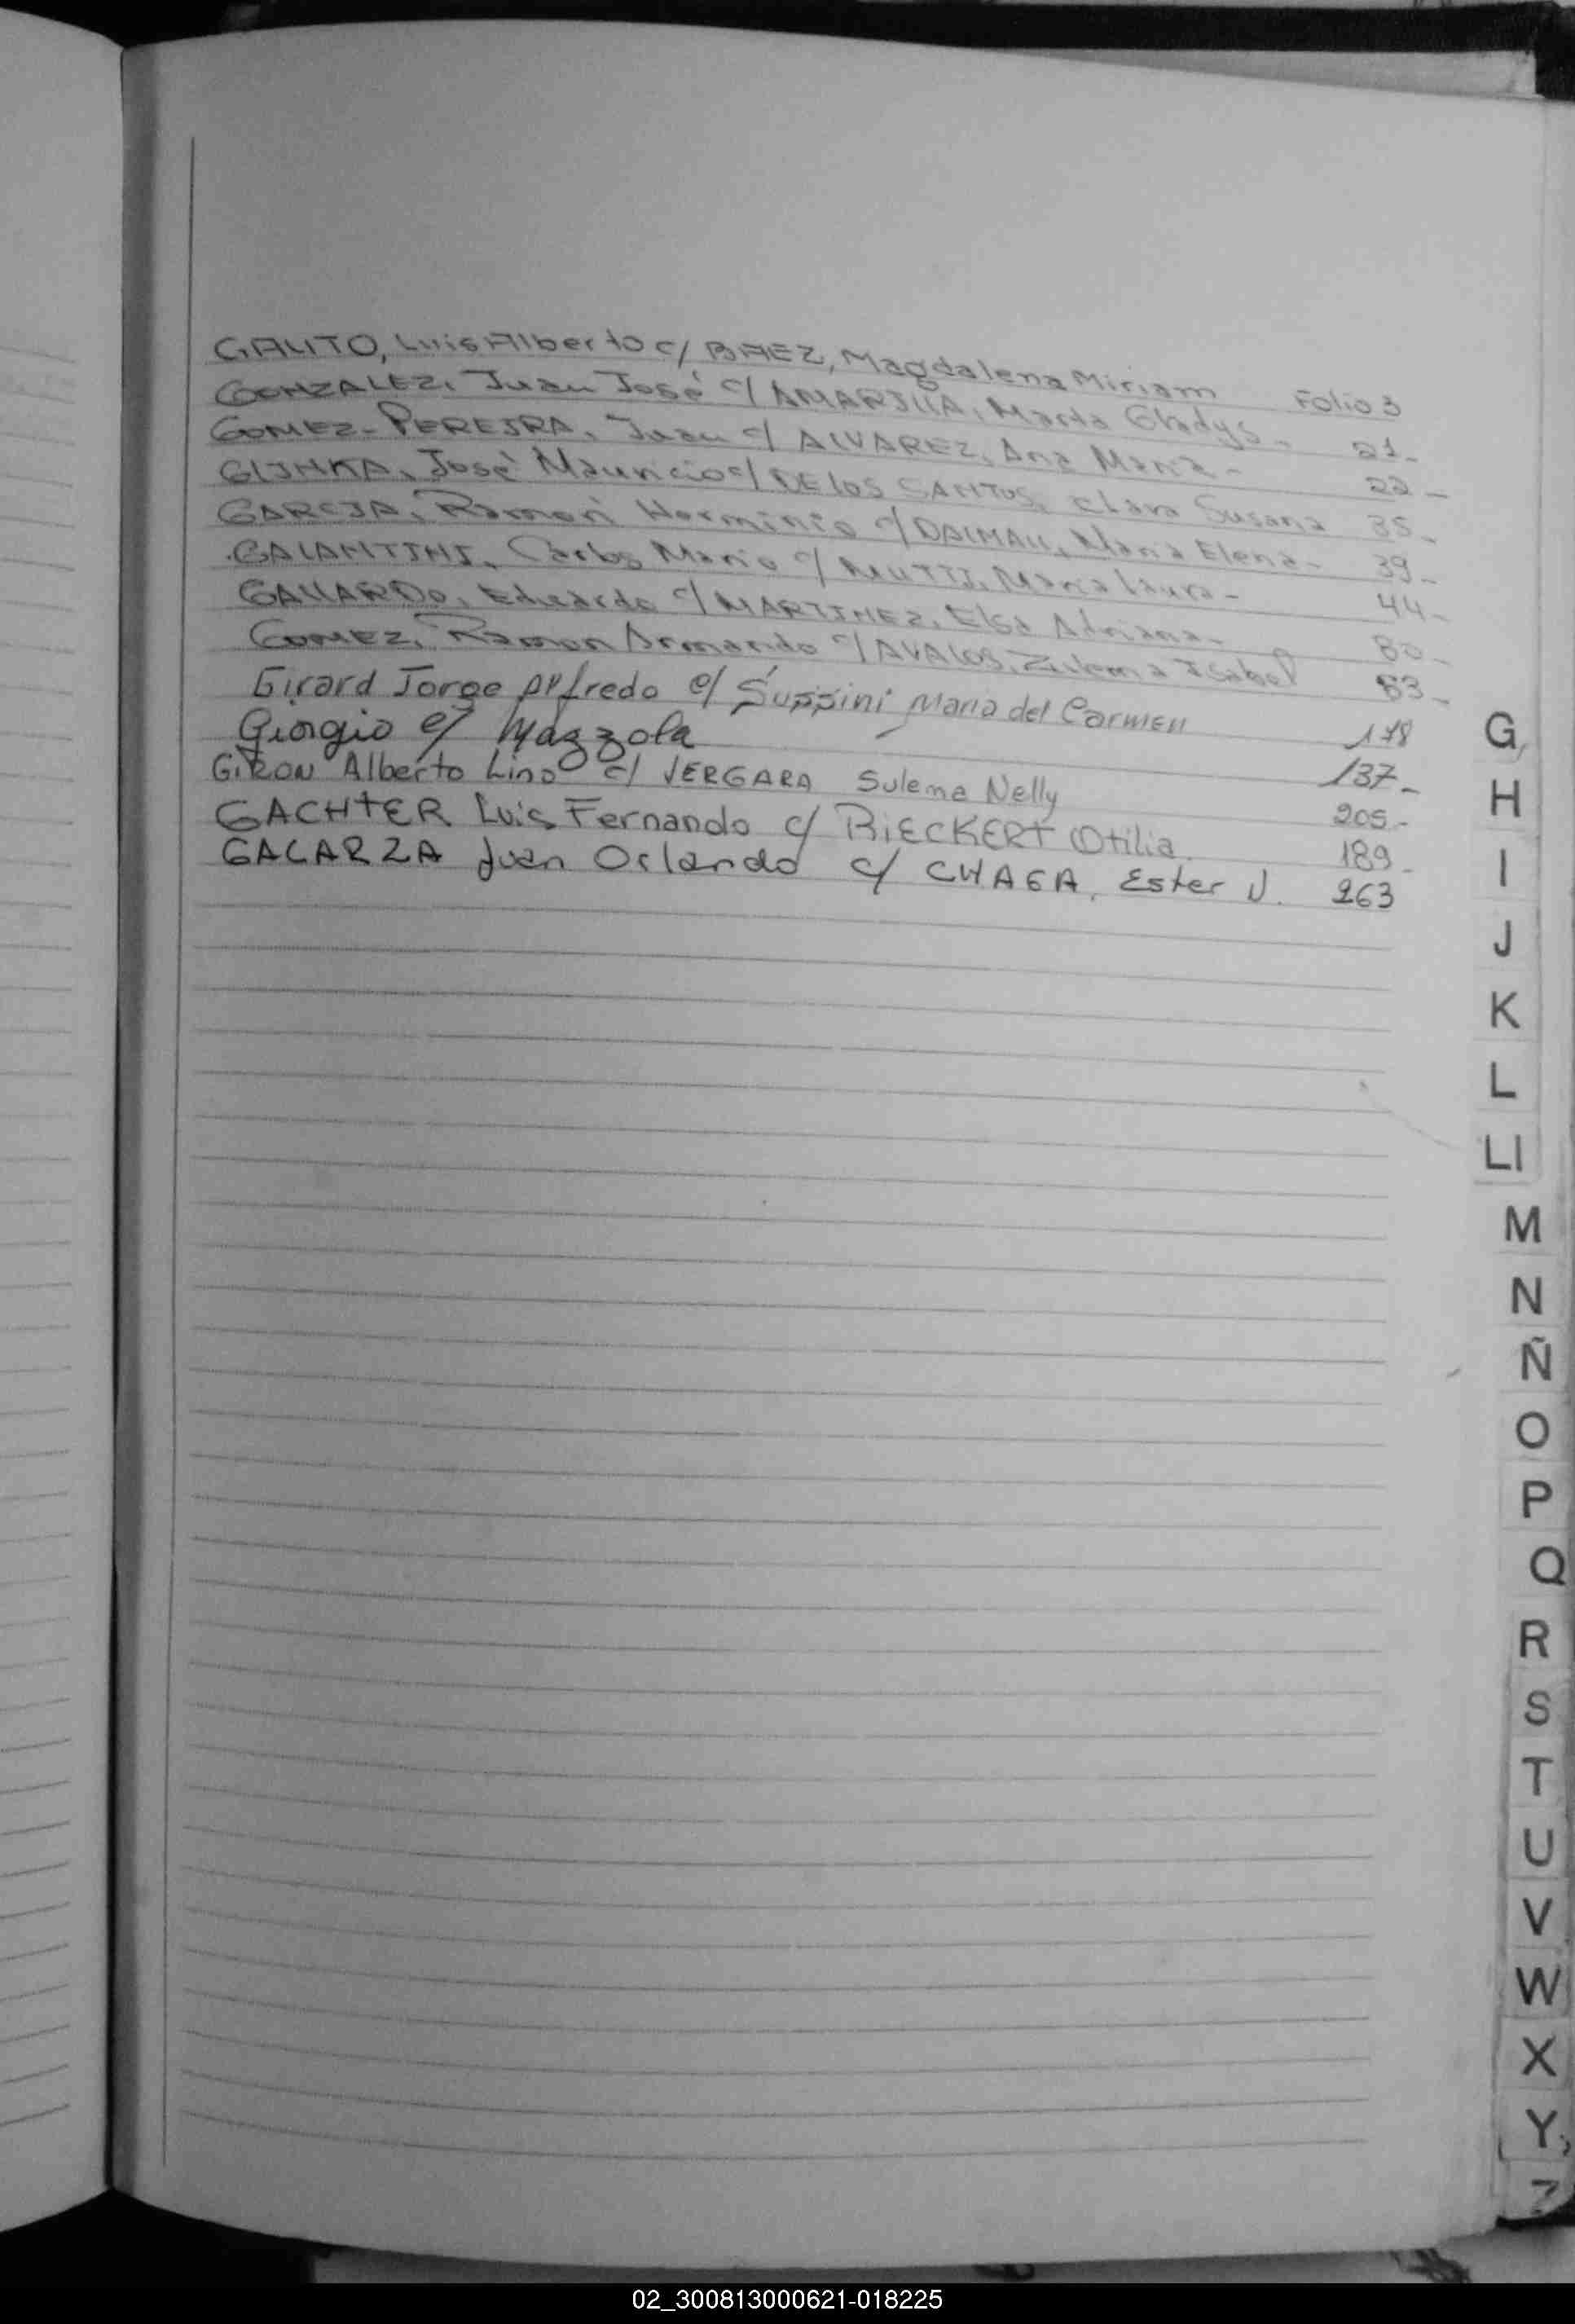 GAUTO, Luis Alberto c/ BAEZ, Magdalena Miriam Folio 3
GONZALEZ, Juan José c/ AMARILLA, Marta Gladys - 21-
GOMEZ-PEREIRA, Juan c/ ALVAREZ, Ana Maria - 22-
GLINKA, José Mauricio c/ DE los SANTOS, Clara Susana 35-
GARCIA, Ramón Herminio c/ DALMAU, Maria Elena- 39-
GALANTINI, Carlos Mario c/ MUTTI, Maria Laura- 44-
GALLARDO, Eduardo c/ MARTINEZ, Elsa Adriana- 80-
GOMEZ, Ramon Armando c/ AVALOS, Zulema Isabel 83-
Girard Jorge Alfredo c/ Sussini Maria del Carmen 178
Giorgio c/ Mazzola 137-
GIRON Alberto Lino c/ VERGARA Sulema Nelly 205-
GACHTER Luis Fernando c/ RIECKERT Otilia. 189-
GALARZA Juan Orlando c/ CHAGA, Ester N. 263
G
H
I
J
K
L
Ll
M
N
Ñ
O
P
Q
R
S
T
U
V
W
X
Y
Z
02_300813000621-018225